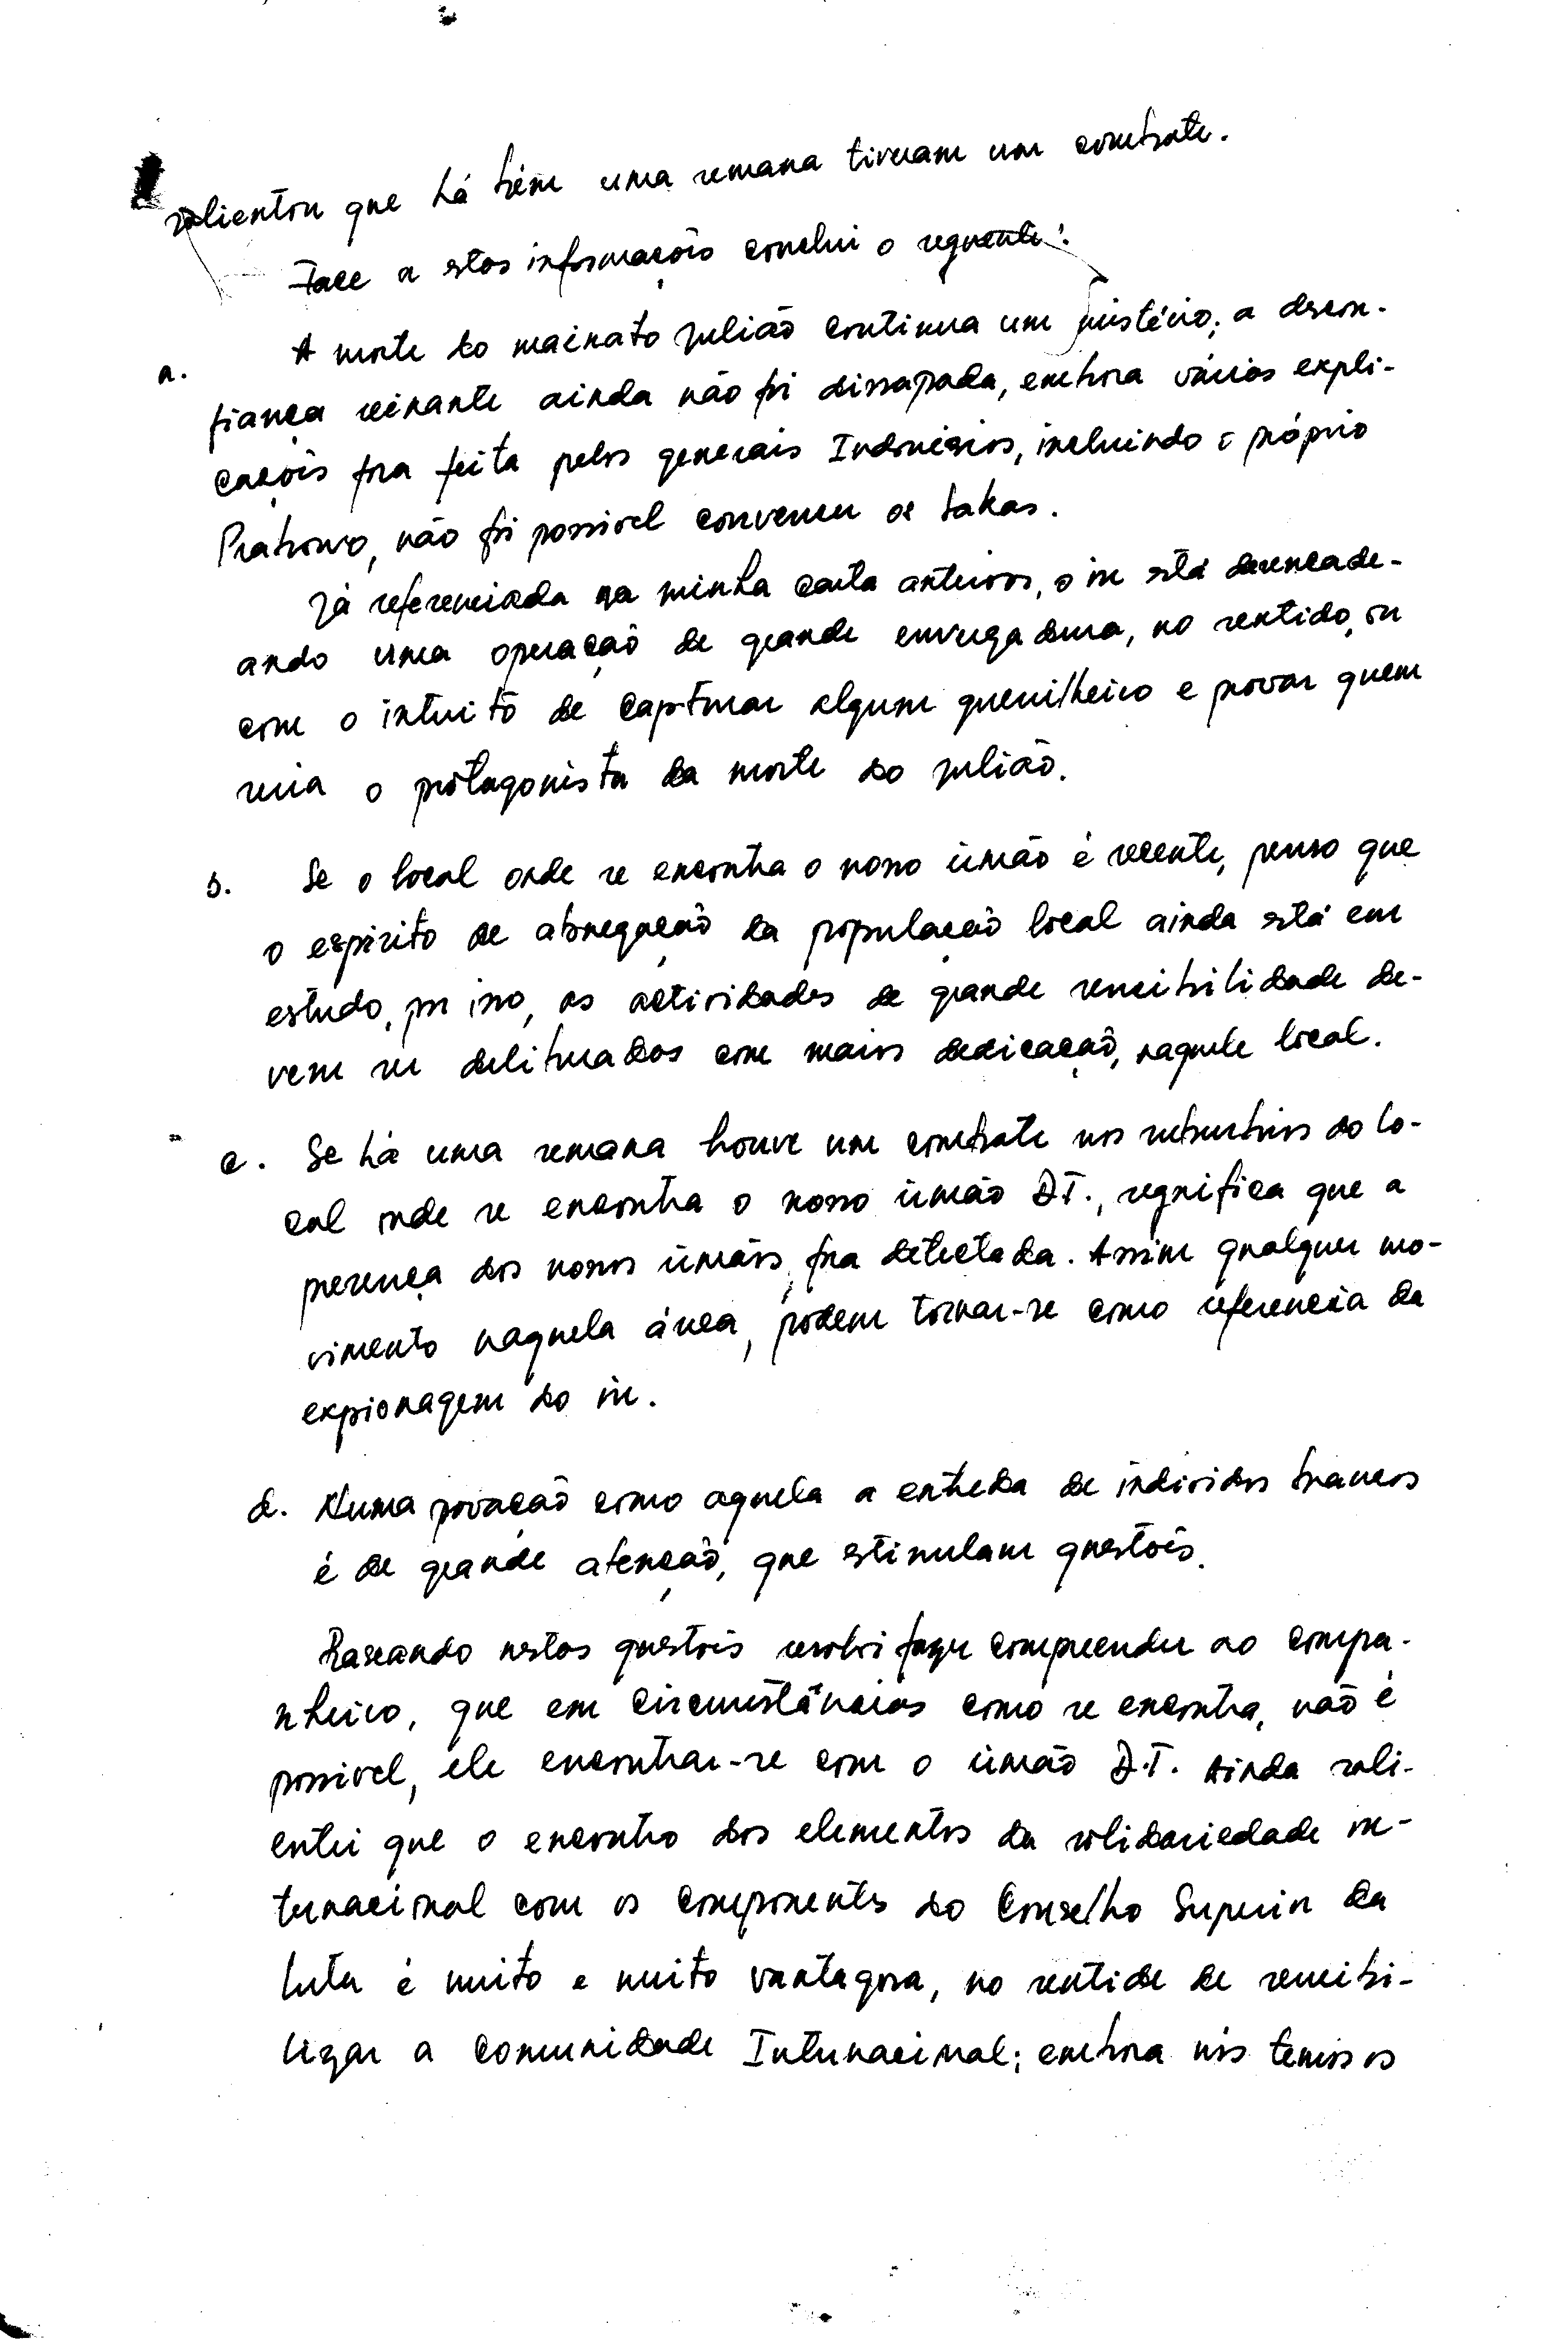 salientou que há bém uma semana tiveram um combate.
Face a estas informações conclui o seguente:
a. A morte do mainato Julião continua um mistério; a descon-
fiança reinante ainda não foi dissapada, embora várias expli-
cações fora feita pelos generais Indonésios, incluindo o próprio
Prabowo, não foi possivel convencer os bakas.
Já referenciada na minha carta anterior, o in está desencade-
ando uma operação de grande envergadura, no sentido, ou
com o intuito de capturar algum guerrilheiro e provar quem
seria o protagonista da morte do Julião.
b. Se o local onde se encontra o nosso irmão é recente, penso que
o espirito de abnegação da população local ainda está em
estudo, por isso, as actividades de grande sencibilidade de-
vem ser delibrados com mais dedicação, naquele local.
c. Se há uma semana houve um combate nos suburbios do lo-
cal onde se encontra o nosso irmão D.T., segnifica que a
presença dos nossos irmãos, fora detectada. Assim qualquer mo-
vimento naquela área, podem tornar-se como referencia da
expionagem do in.
d. Numa povoação como aquela a entreda de individos brancos
é de grande atenção, que estimulam questões.
Baseando nestas questões resolvi fazer compreender ao compa-
nheiro, que em circumstâncias como se encontra, não é
possivel, ele encontrar-se com o irmão D.T. Ainda sali-
entei que o encontro dos elementos da solidariedade in-
ternacional com os componentes do Conselho Superior da
luta é muito e muito vantagosa, no sentido de sencibi-
lizar a comunidade Internacional; embora nós temos os